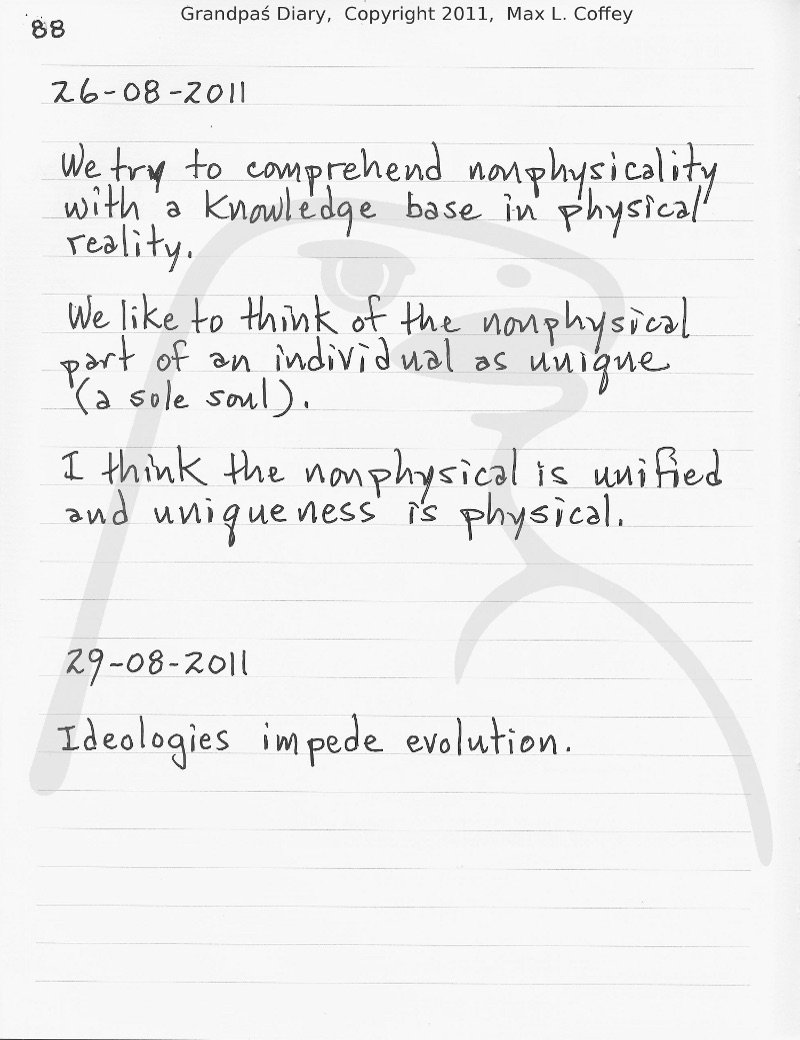 Grandpaś Diary, Copyright 2011, Max L. Coffey
88
26-08-2011
We try to comprehend nonphysicality
with a Knowledge base in physical
reality.
We like to think of the nonphysical
part of an individual as unique
(a sole soul).
I think the nonphysical is unified
and uniqueness is physical.
29-08-2011
Ideologies impede evolution.